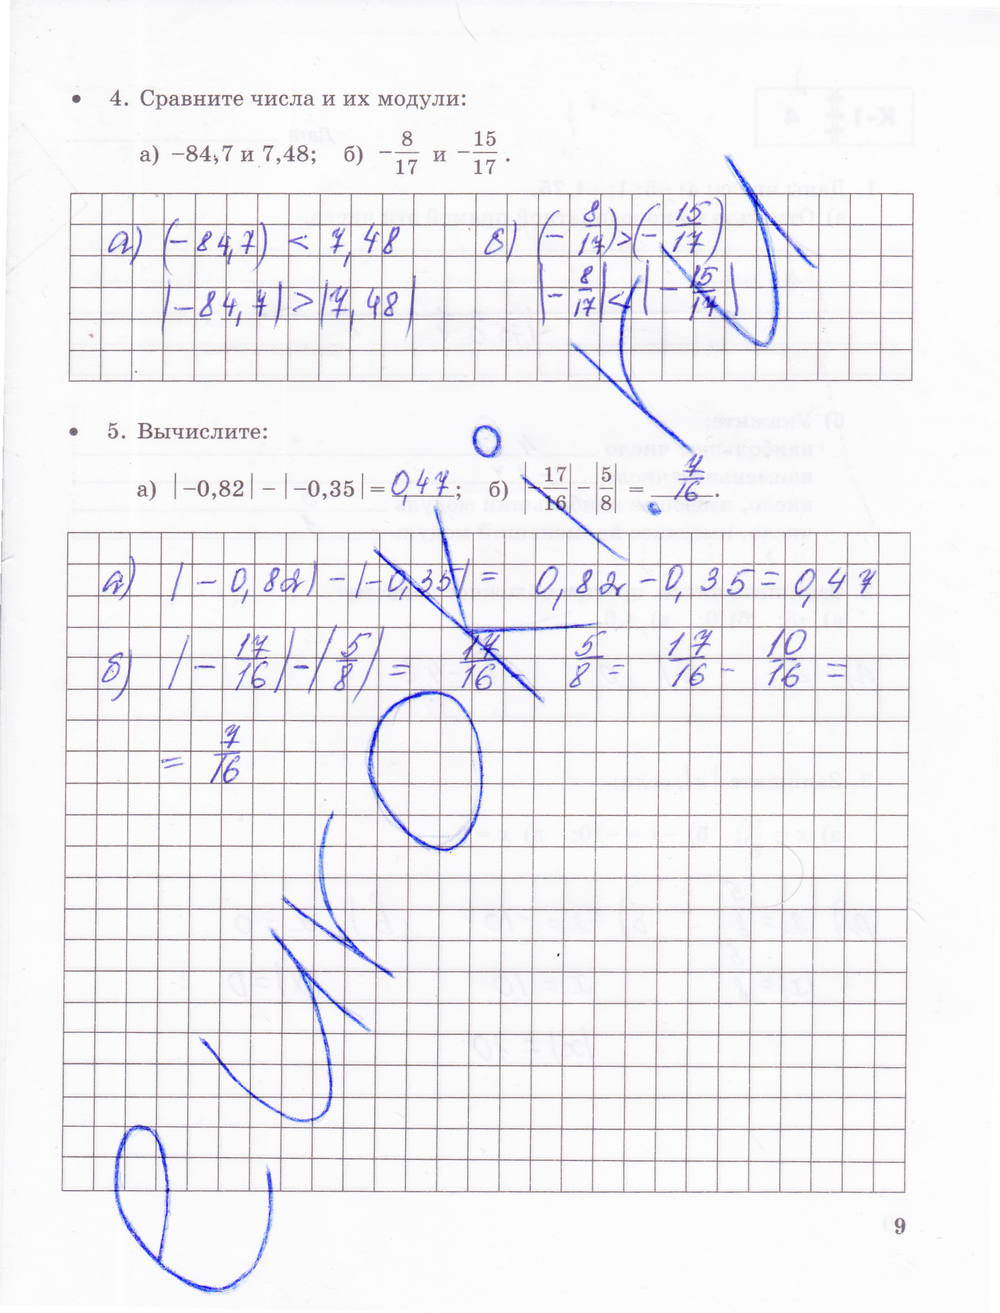 • 4. Сравните числа и их модули:
а) −84,7 и 7,48; б) −8/17 и −15/17.
а) (−84,7) < 7,48 б) (−8/17) > (−15/17)
|−84,7| > |7,48| |−8/17| < |−15/17|
• 5. Вычислите:
а) |−0,82| − |−0,35| = 0,47; б) |−17/16| − |5/8| = 7/16.
а) |−0,82| − |−0,35| = 0,82 − 0,35 = 0,47
б) |−17/16| − |5/8| = 17/16 − 5/8 = 17/16 − 10/16 =
= 7/16
9